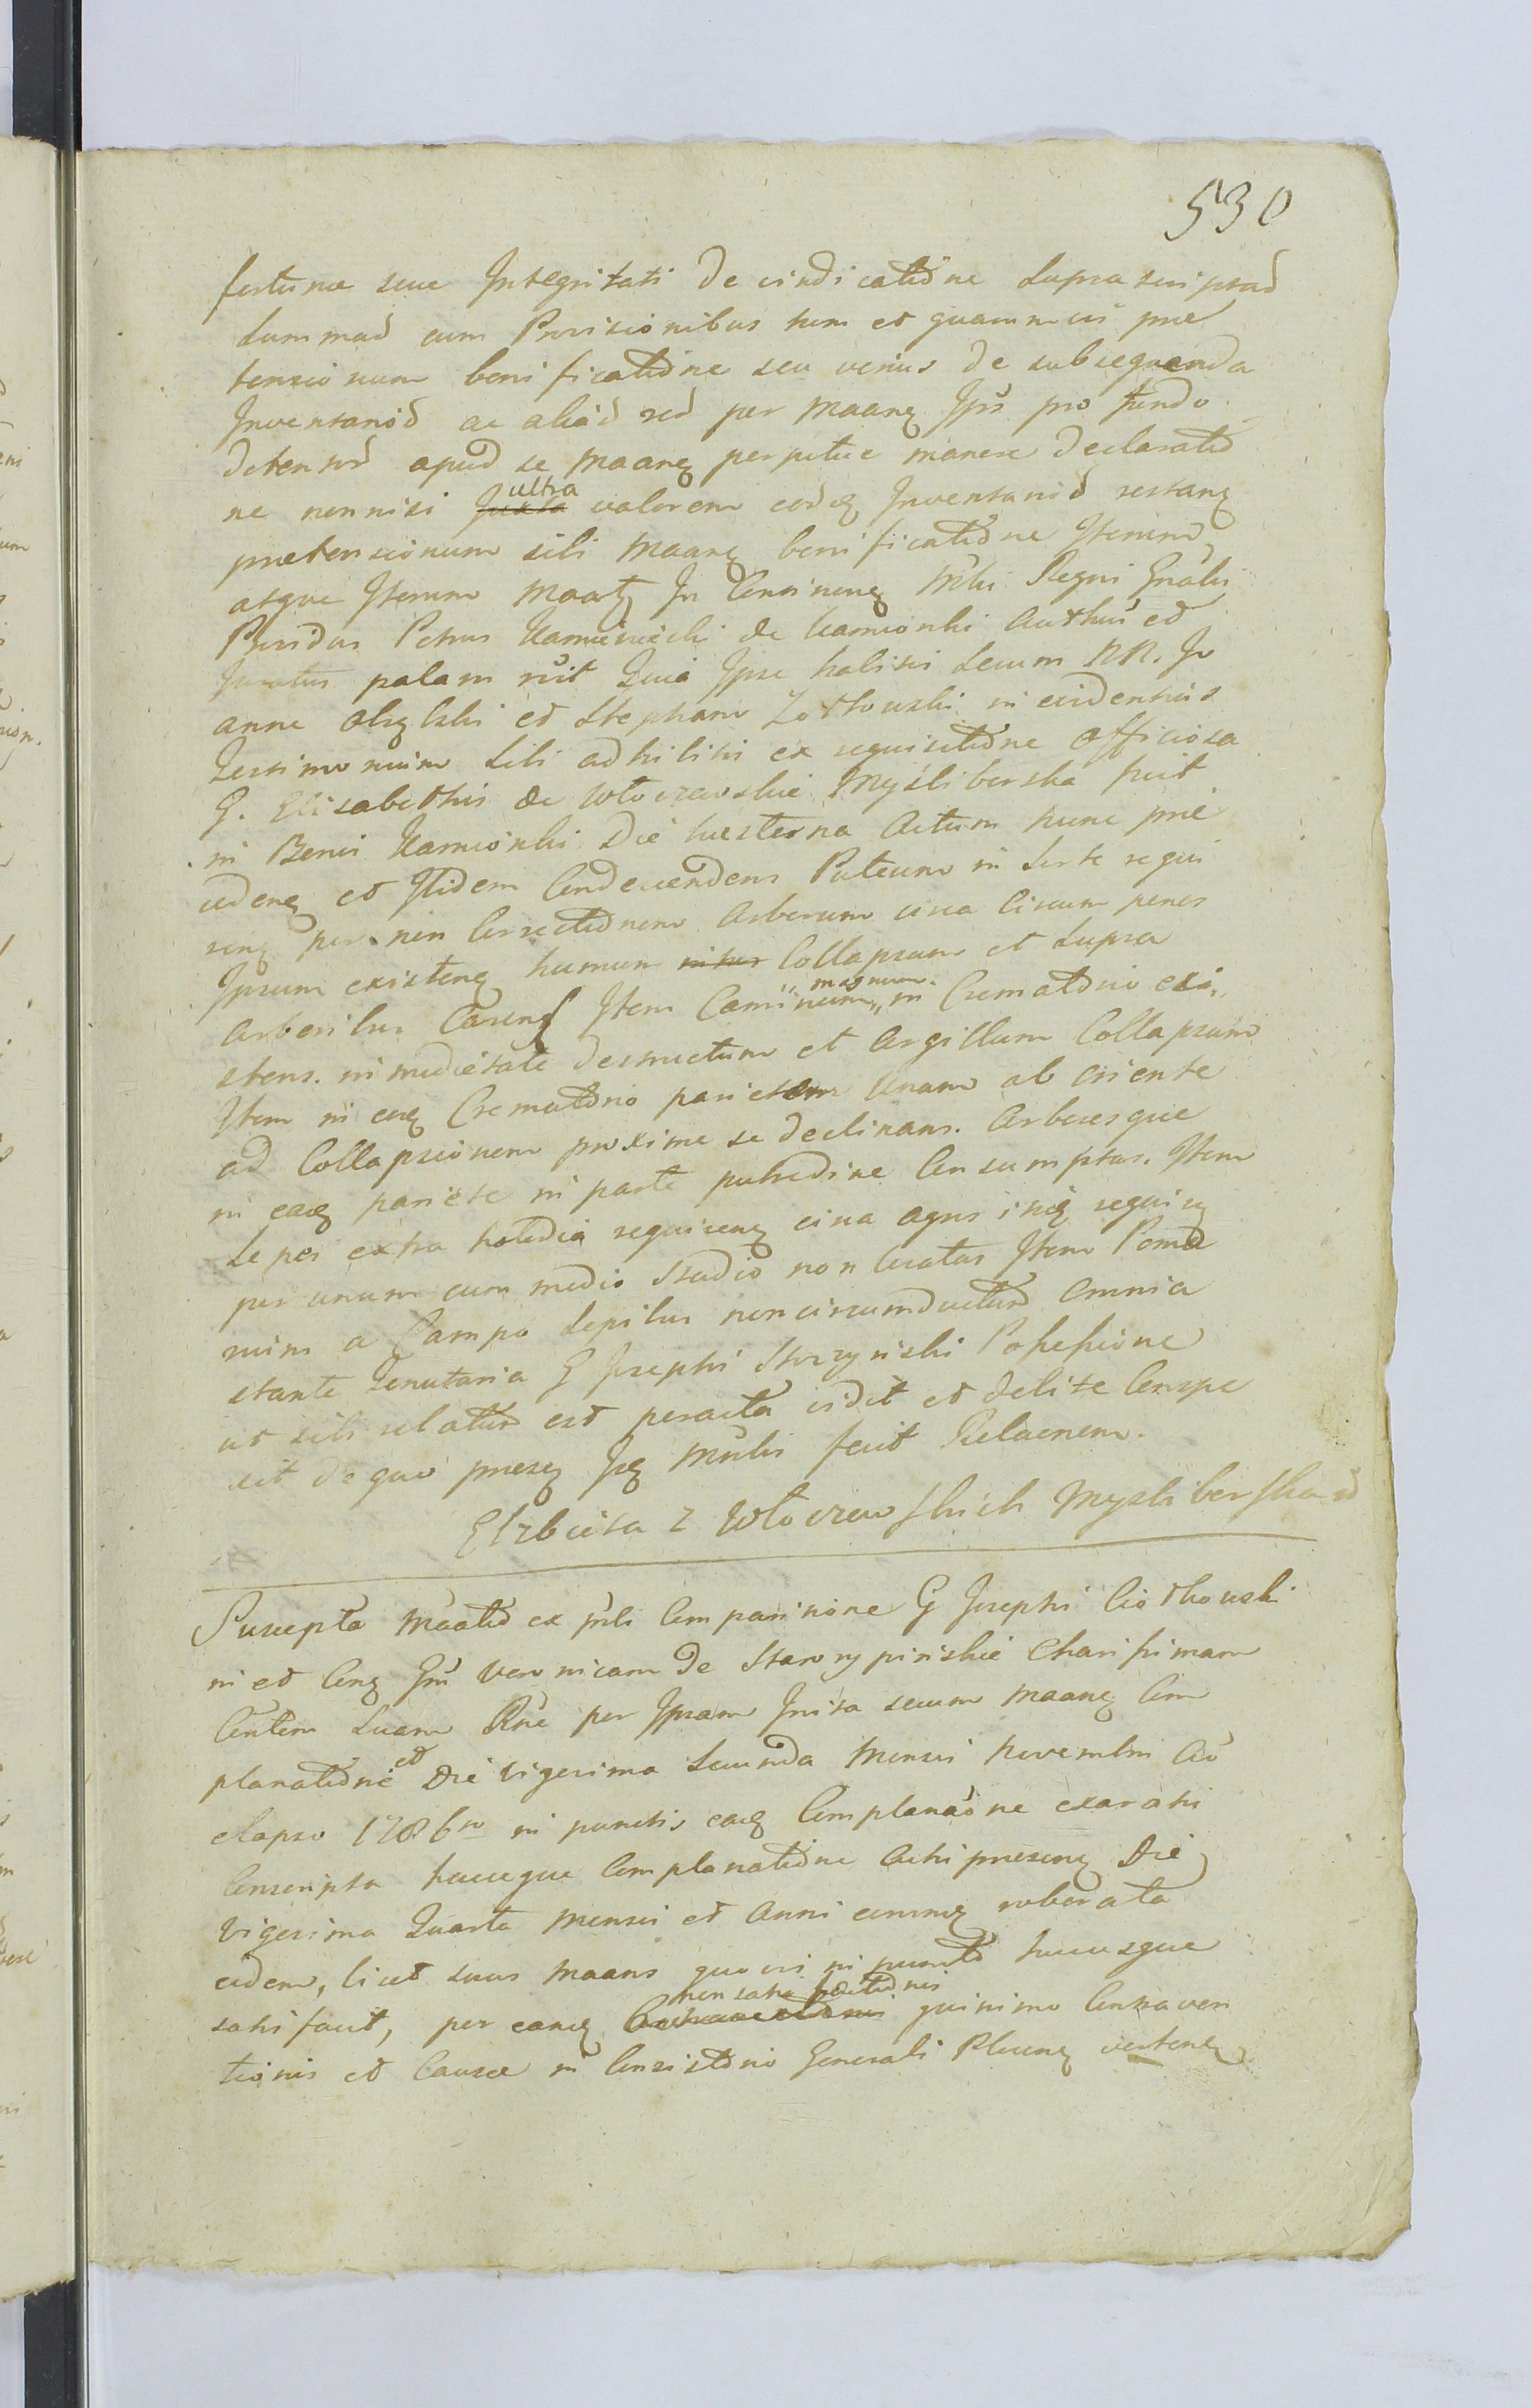 530
fortunæ suæ Integritati de vindicatione suprascriptar
summar cum Provisionibus tum et quarumvis præ
tensionum bonificatione seu verius de subsequenda
Inventarior ac aliar red per Maanq Ipsi pro fundo
detentor apud se Maanq perpetue manere declaratio
ne nonnisi ultra valorem eordq Inventarior restanq
prætensionum sibi Maanq bonificatione Iterum
atque Iterum In Mnlis Regni Gnalis
Providus Petrus Kamieński de Kamionki Authus et
Juratus palam rcit Quia Ipse habitis secum NN. Jo
anne et Stephano in evidentius
Testimonium sibi adhibitis ex requisitione officiosa
G. Elisabethis de Włoczewskie Myśliborska fuit
in Bonis Kamionki die hesterna Actum hunc præ
cedenq et Ibidem Condescendens Puteum in sorte requi
renq per non Correctionem Arborum circa Civum penes
Ipsum existenq humum Collapsum et supra
Arboribus Carenq Item Caminum magnum in Crematorio exi,,
stens. in medietate destructum et Argillam Collapsum
Item in eoq Crematorio parietem unam ab oriente
ad Collapsionem proxime se declinans. Arboresque
in eaq pariete in parte putredine Consumptas. Item
Sepes extra requirenq circa agros requirq
per unum cum medio Stadio non locatas Item Pomæ
rium a Campo Sepibus non circumductum omnia
stante Tenutaria G Josephi Possessione
ut sibi relatum est peracta vidit et debite Conspe
xit de quo præsq Iq Mnlis fecit Relaonem.
Elzbieta z Włoczewskich Myśliborska
Suscepta Maatio ex pnli Comparitione G Josephi Ciołkowski
in et Conq Gni Veronicam de Starorypinskie Charissimam
Contem suam Rne per Ipsam Inita secum Maanq Com
planatione et Die vigesima secunda Mensis Novembri Ao
elapso 1786to in punctis eaq Complanaone exaratis
Conscripta hucusque Complanatione Acti præsenq Die
vigesima Quarta Mensis et Anni eorumq roborata
eidem, licet suus Maans quovis in puncto hucusque
satisfacit, per eanq non satisfactionis quinimo Contraven
tionis et Causæ in Consistorio Generali Plocenq vertenq